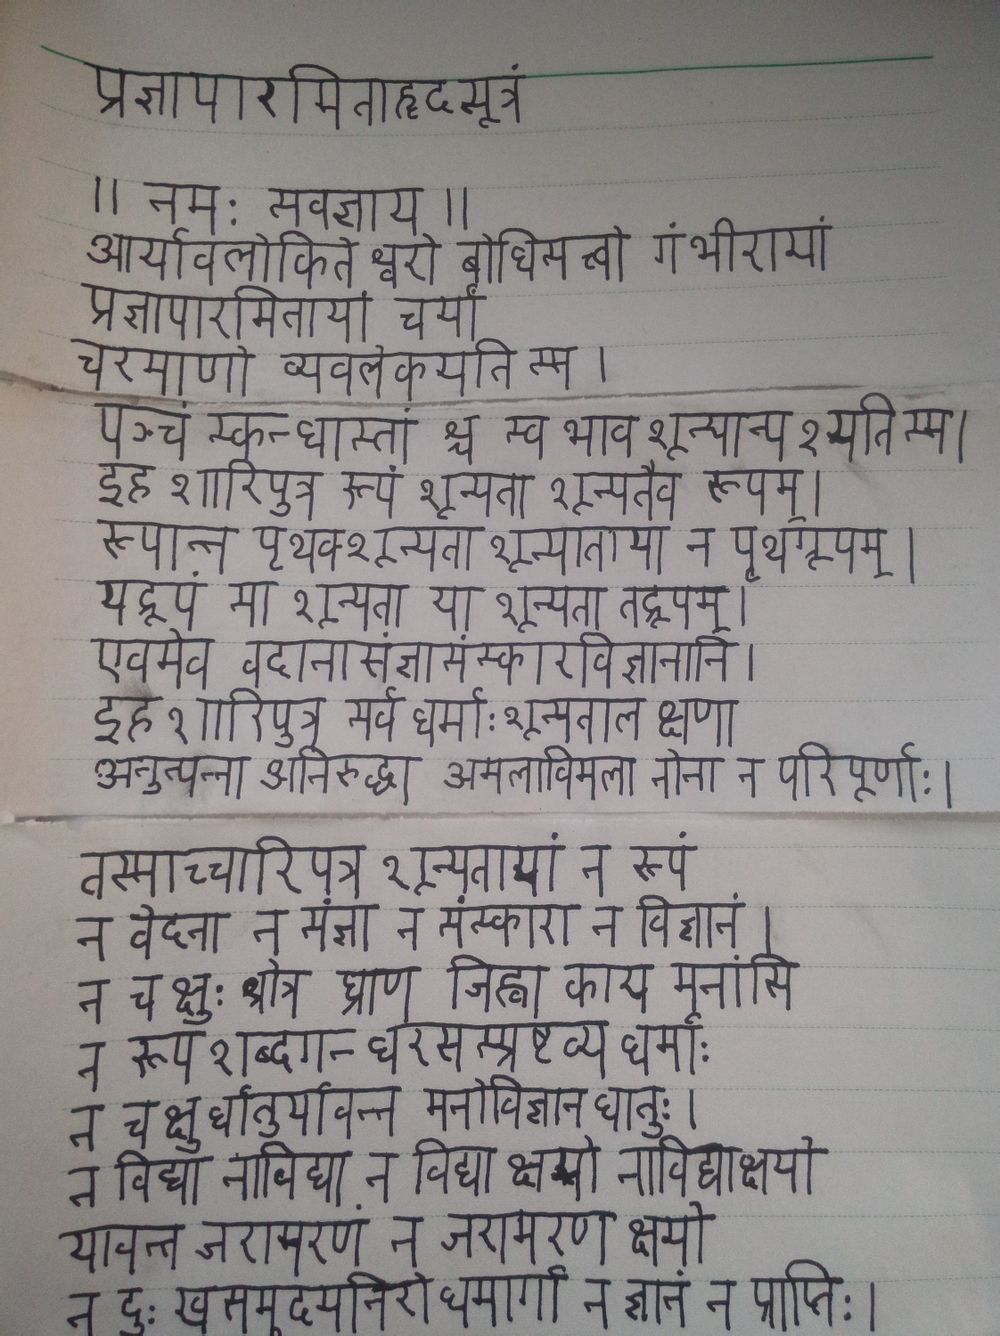 प्रज्ञापारमिताहृदसूत्रं
॥ नमः सवज्ञाय ॥
आर्यावलोकिते श्वरो बोधिसत्त्वो गंभीरायां
प्रज्ञापारमितायां चर्यां
चरमाणो व्यवलेकयति स्म ।
पञ्चं स्कन्धास्तां श्च स्व भाव शून्यान्प श्यति स्म।
इह शारिपुत्र रूपं शून्यता शून्यतैव रूपम्।
रूपान्न पृथक्शून्यता शून्याताया न पृथग्रूपम्।
यद्रूपं सा शून्यता या शून्यता तद्रूपम्।
एवमेव वदानासंज्ञासंस्कारविज्ञानानि।
इह शारिपुत्र सर्व धर्माः शून्यताल क्षणा
अनुत्पन्ना अनिरुद्धा अमलाविमला नोना न परिपूर्णाः।
तस्माच्चारिपत्र शून्यतायां न रूपं
न वेदना न संज्ञा न संस्कारा न विज्ञानं।
न चक्षुः श्रोत्र घ्राण जिह्वा काय मनांसि
न रूप शब्दगन्धरसस्प्रष्टव्य धर्माः
न चक्षुर्धातुर्यावन्न मनोविज्ञान धातुः।
न विद्या नाविद्या न विद्या क्षयो नाविद्याक्षयो
यावन्न जरामरणं न जरामरण क्षयो
न दुः खसमुदयनिरोधमार्गा न ज्ञानं न प्राप्तिः।